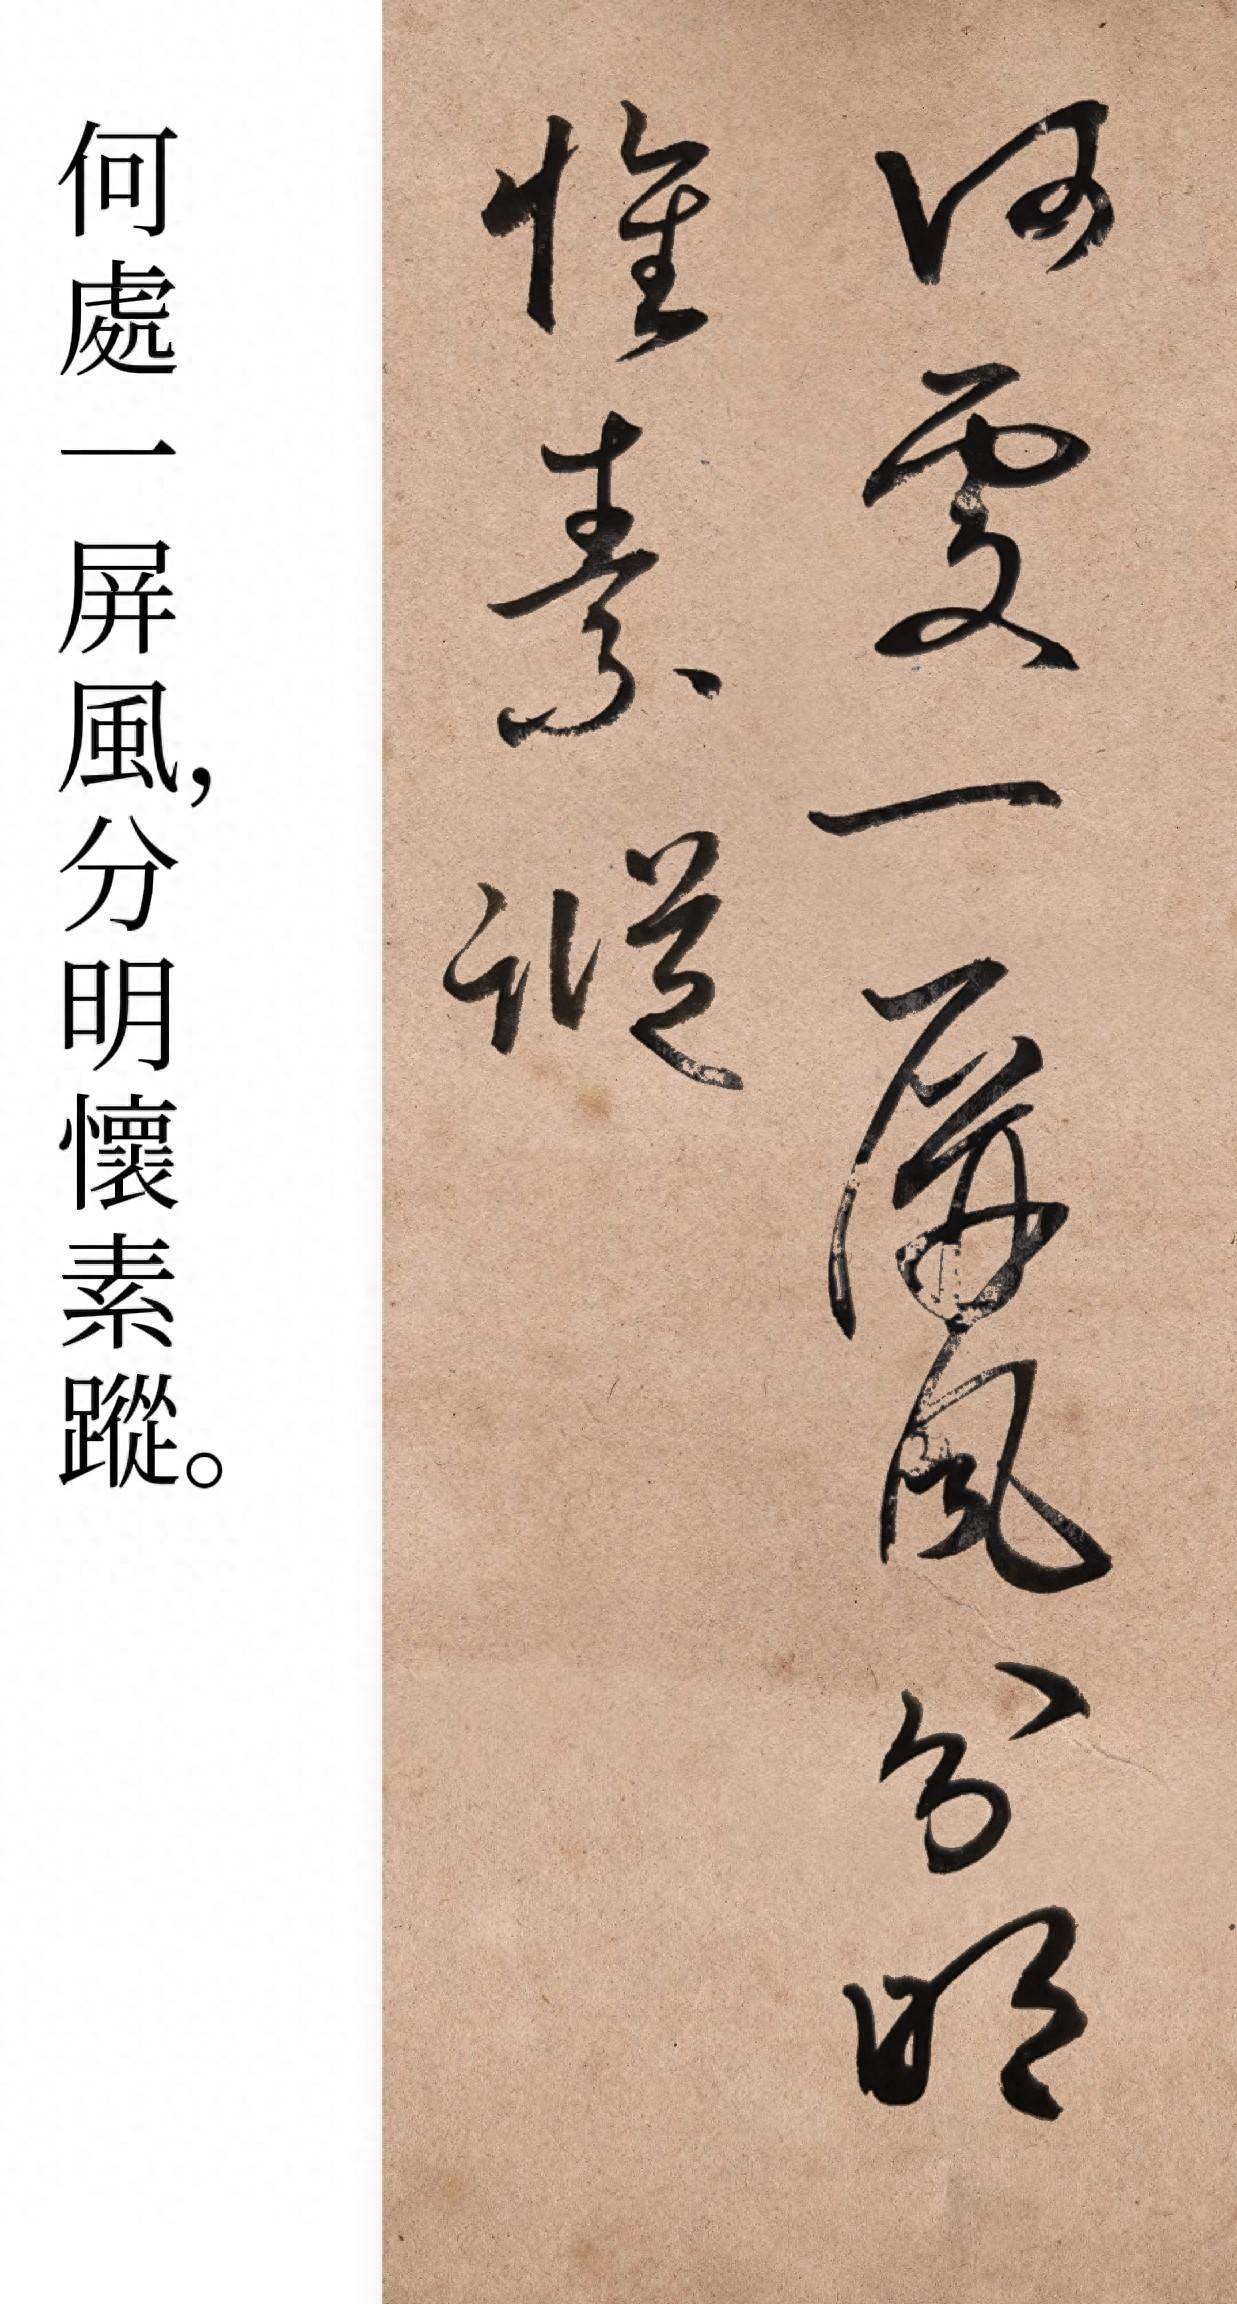 何處一屏風分明
懷素蹤
何處一屏風,分明懷素蹤。